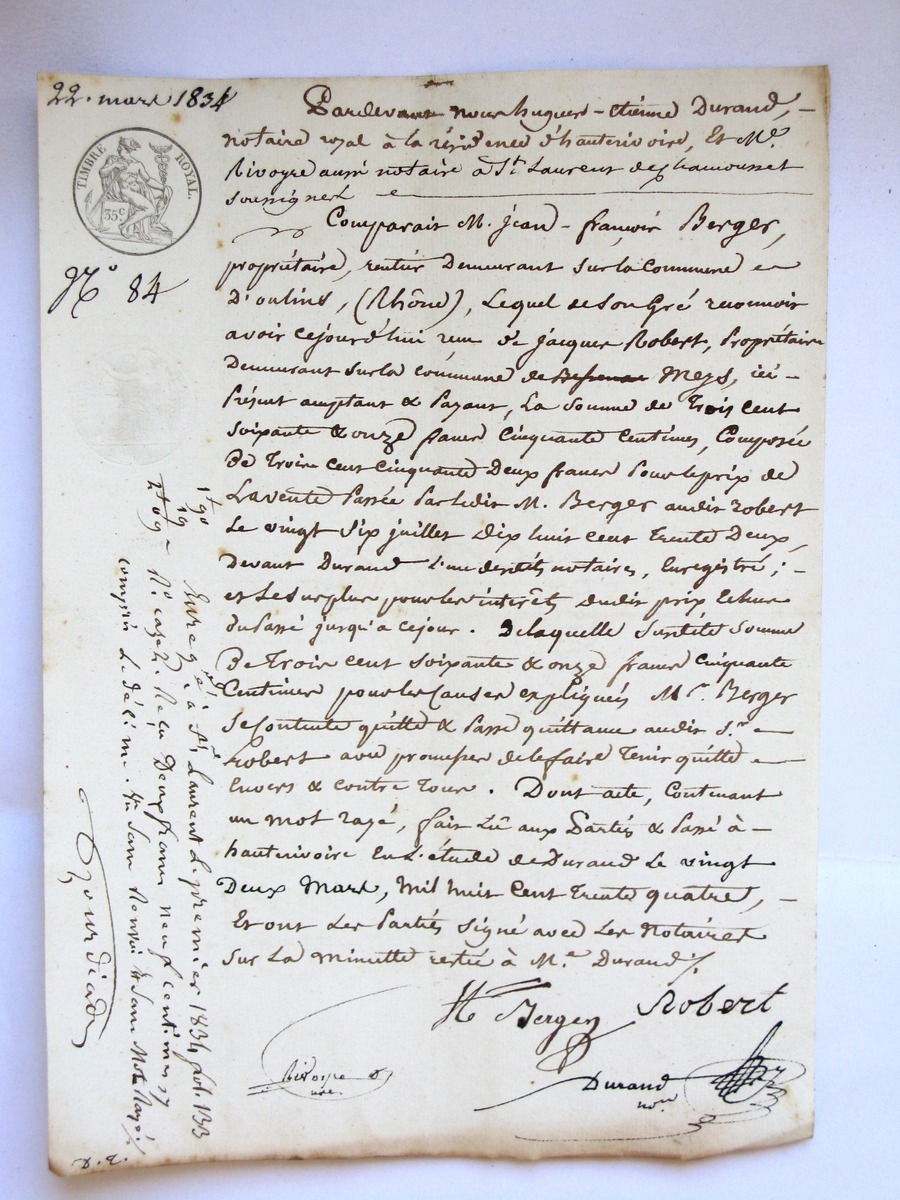 22. mars 1834
TIMBRE ROYAL.
35c
N.º 84
Pardevant nous hugues-étienne Durand,
notaire royal à la résidence d'hauterivoire, Et Me.
Rivoyre aussi notaire à St. Laurent de chamousset
soussignés
Comparait M. jean-françois Berger,
propriétaire, rentier Demeurant sur la Commune
D'oulins, (Rhône), Lequel de son Gré reconnoit
avoir cejourd'hui reçu de jacques Robert, Propriétaire
Demeurant sur la Commune de Meys, ici
Présent acceptant & Payant, La Somme de Trois Cent
soixante & onze francs Cinquante Centimes, Composée
De Trois Cent Cinquante Deux francs Pour le prix de
La vente Passée Par ledit M. Berger audit Robert
Le vingt Six juillet Dix huit Cent Trente Deux,
Devant Durand L'un desdits notaires, Enregistré;
et Le Surplus pour les interêts dudit prix Echus
Du Passé jusqu'à ce jour. De laquelle Susdite Somme
De Trois Cent Soixante & onze francs Cinquante
Centimes pour les Causes expliquées Mr. Berger
Se Contente quitte & Passe quittance audit Sr.
Robert avec promesse de le faire Tenir quitte
Envers & Contre Tous. Dont acte, Contenant
un mot rayé, fait Lû aux Parties & Passé à
hauterivoire En L'étude de Durand Le vingt
Deux Mars, Mil huit Cent Trente quatre,
Et ont Les Parties Signé avec Les Notaires
Sur La Minutte restée à Me. Durand
Berger Robert
Rivoire
nre.
Durand
nore
Enregé. à St. Laurent le premier 1834 fol. 133
Reçu Deux francs neuf centimes
compris le décime. Sans Renvoi & Sans Mots Rayé
D. E.